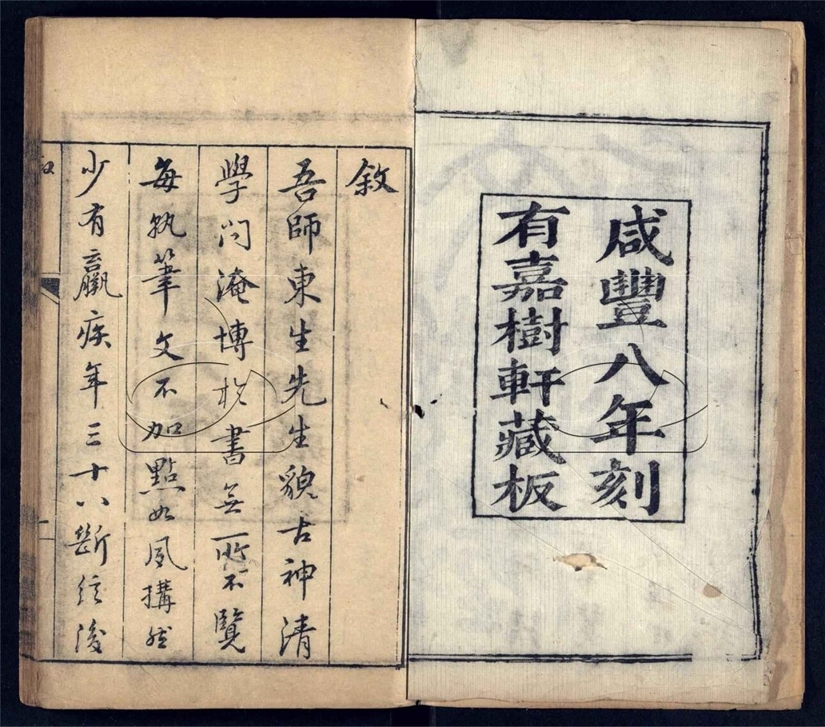 咸豐八年刻
有嘉樹軒藏板
敘
吾師東生先生貌古神清
學问淹博於書無所不覽
每執筆文不加點如夙搆然
少有羸疾年三十八斷弦後